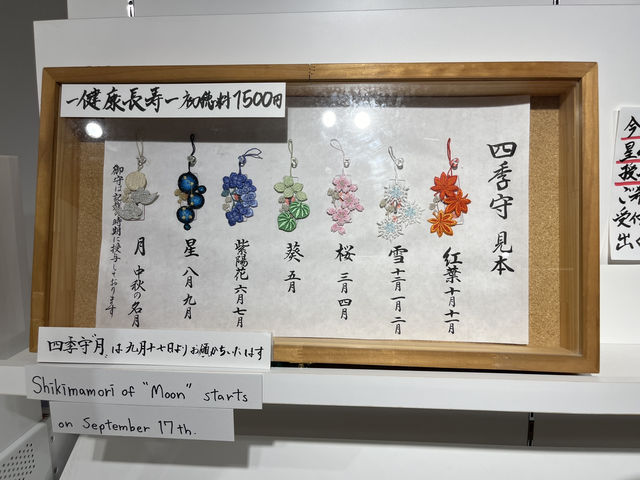 一健康長寿一初穂料1500円
四季守 見本
紅葉 十月 十一月
雪 十二月 一月 二月
桜 三月 四月
葵 五月
紫陽花 六月 七月
星 八月 九月
月 中秋の名月
御守は記載の時期に授与しております
四季守"月"は九月十七日よりお頒かちいたします
Shikimamori of "Moon" starts
on September 17th.
今
星
授
ご
受付
出